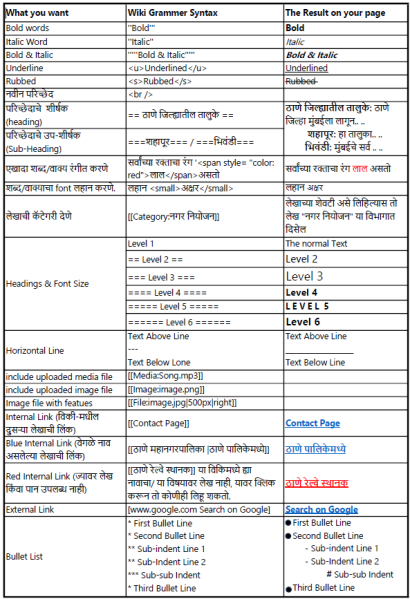 What you want	Wiki Grammer Syntax	The Result on your page
Bold words	"Bold"'	Bold
Italic Word	"Italic"	Italic
Bold & Italic	""'Bold & Italic""'	Bold & Italic
Underline	<u>Underlined</u>	Underlined
Rubbed	<s>Rubbed</s>	Rubbed
नवीन परिच्छेद	<br />
परिच्छेदाचे शीर्षक (heading)	== ठाणे जिल्ह्यातील तालुके ==	ठाणे जिल्ह्यातील तालुके: ठाणे जिल्हा मुंबईला लागून.. ..
परिच्छेदाचे उप-शीर्षक (Sub-Heading)	===शहापूर=== / ===भिवंडी===	शहापूर: हा तालुका.. ..
भिवंडी: मुंबईचे सर्व .. ..
एखादा शब्द/वाक्य रंगीत करणे	सर्वांच्या रक्ताचा रंग '<span style= "color: red">लाल</span>असतो	सर्वांच्या रक्ताचा रंग लाल असतो
शब्द/वाक्याचा font लहान करणे.	लहान <small>अक्षर</small>	लहान अक्षर
लेखाची कॅटेगरी देणे	[[Category:नगर नियोजन]]	लेखाच्या शेवटी असे लिहिल्यास तो लेख "नगर नियोजन" या विभागात दिसेल
Headings & Font Size
Level 1	The normal Text
== Level 2 ==	Level 2
=== Level 3 ===	Level 3
==== Level 4 ====	Level 4
===== Level 5 =====	LEVEL 5
====== Level 6 ======	Level 6
Horizontal Line
Text Above Line	Text Above Line
---
Text Below Lone	Text Below Line
include uploaded media file	[[Media:Song.mp3]]
include uploaded image file	[[Image:image.png]]
Image file with featues	[[File:image.jpg|500px|right]]
Internal Link (विकी-मधील दुसऱ्या लेखाची लिंक)	[[Contact Page]]	Contact Page
Blue Internal Link (वेगळे नाव असलेल्या लेखाची लिंक)	[[ठाणे महानगरपालिका |ठाणे पालिकेमध्ये]]	ठाणे पालिकेमध्ये
Red Internal Link (ज्यावर लेख किंवा पान उपलब्ध नाही)	[[ठाणे रेल्वे स्थानक]] या विकिमध्ये ह्या नावाचा/ या विषयावर लेख नाही, यावर क्लिक करून तो कोणीही लिहू शकतो.	ठाणे रेल्वे स्थानक
External Link	[www.google.com Search on Google]	Search on Google
Bullet List
* First Bullet Line	● First Bullet Line
* Second Bullet Line	● Second Bullet Line
** Sub-indent Line 1	- Sub-indent Line 1
** Sub-Indent Line 2	- Sub-Indent Line 2
*** Sub-sub Indent	# Sub-sub Indent
* Third Bullet Line	● Third Bullet Line